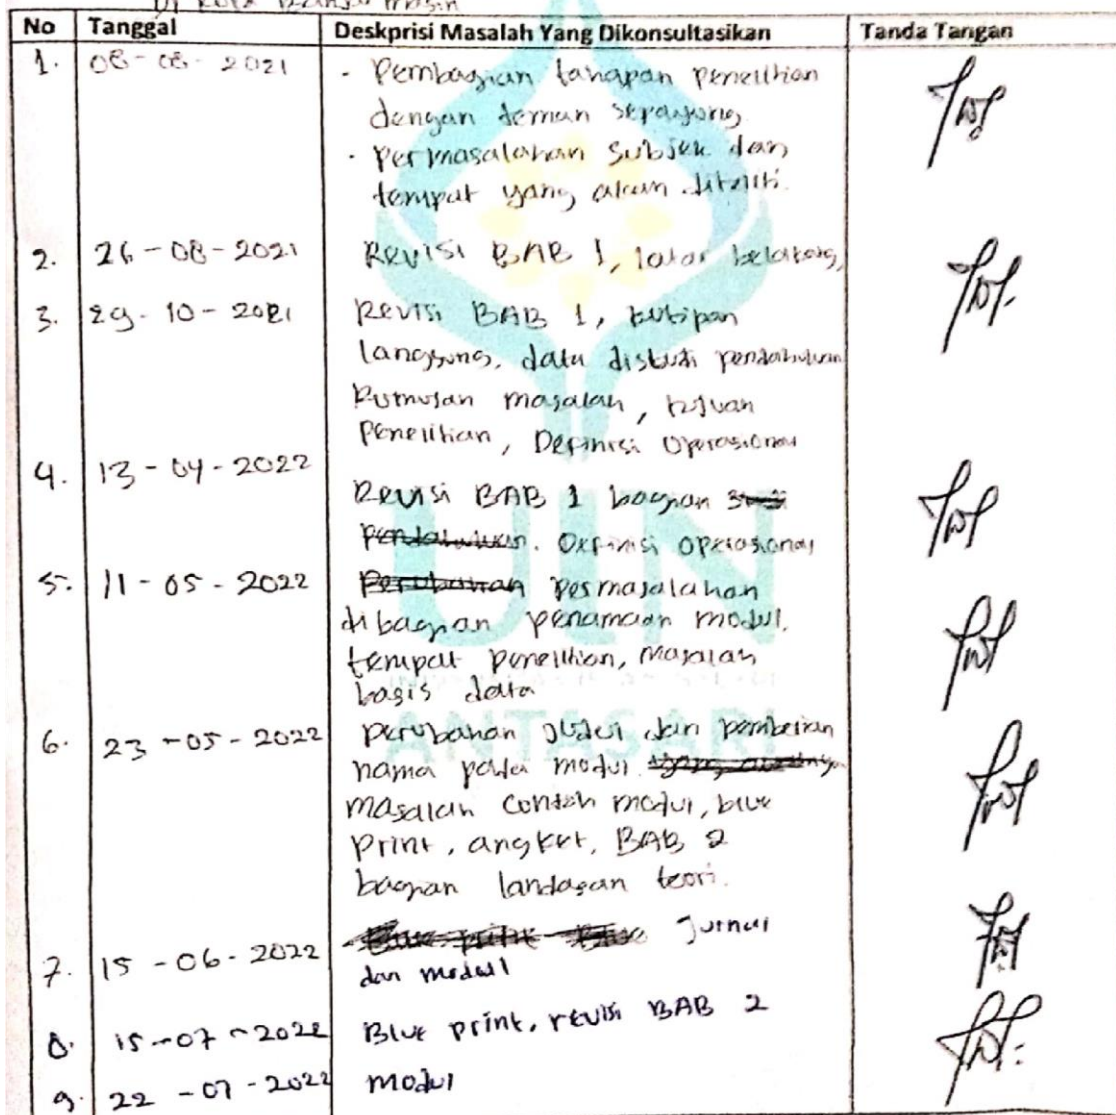 Di Kota Banjarmasin
No Tanggal Deskprisi Masalah Yang Dikonsultasikan Tanda Tangan
1. 08-08-2021 - Pembagian tahapan penelitian
dengan teman sepayung
- Permasalahan subjek dan
tempat yang akan diteliti.
2. 26-08-2021 Revisi BAB 1, latar belakang,
3. 29-10-2021 Revisi BAB 1, kutipan
langsung, data distudi pendahuluan
Rumusan masalah, tujuan
Penelitian, Definisi Operasional
4. 13-04-2022
Revisi BAB 1 bagian
pendahuluan. Definisi operasional
5. 11-05-2022 Perubahan Permasalahan
dibagian penamaan modul,
tempat penelitian, masalah
basis data
6. 23-05-2022 perubahan judul dan pemberian
nama pada modul
masalah contoh modul, blue
print, angket, BAB 2
bagian landasan teori.
Jurnal
7. 15-06-2022 dan modul
8. 15-07-2022 Blue print, revisi BAB 2
9. 22-07-2022 modul
UIN
ANTASARI